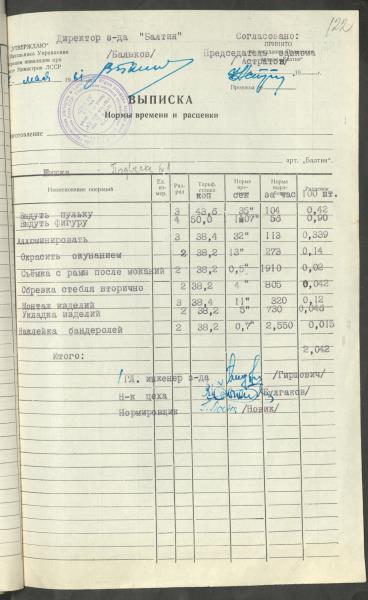 122
Директор з-да "Балтия" Согласовано:
"УТВЕРЖДАЮ" /Бальков/ ПРИНЯТО
Председатель завкома
Астратов/
мая
Протокол
ВЫПИСКА
Нормы времени и расценки
арт. „Балтия"
Шишка
Наименование операций Ед. измер. Разряд Тариф. ставка коп Норма времени сек Норма выра- за час Расценка 100 шт.
Выдуть пульку 3 43,6 35" 104 0,42
Выдуть фигуру 4 50,0 56 0,90
Аллюминировать 3 38,4 32" 113 0,339
Окрасить окунанием 2 38,2 13" 273 0,14
Съёмка с рамы после мокания 2 38,2 0,5" 1910 0,02
Обрезка стебля вторично 2 38,2 4" 805 0,042
Монтаж изделий 3 38,4 11" 320 0,12
Укладка изделий 2 38,2 5" 730 0,046
Наклейка бандеролей 2 38,2 0,7" 2,550 0,015
Итого: 2,042
Гл. инженер з-да /Гиршович/
Н-к цеха /Булгаков/
Нормировщик /Новик/